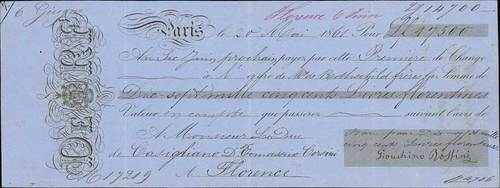 6 Giugno
Florence 6 Juin
14700
Paris
le 20 Mai 1861 Pour 17500
Au Six Juin prochain payez par cette Première de Change
à l'ordre de Mrs de Rothschild frères la Somme de
Dix sept mille cinq cents Livres florentines
Valeur en compte que passerez suivant l'avis de
A Monsieur Le Duc
de Casigliano D. Tommaso Corsini
17219 A Florence
Bon pour Dix sept mille
cinq cents Livres florentines
Giovachino Rossini